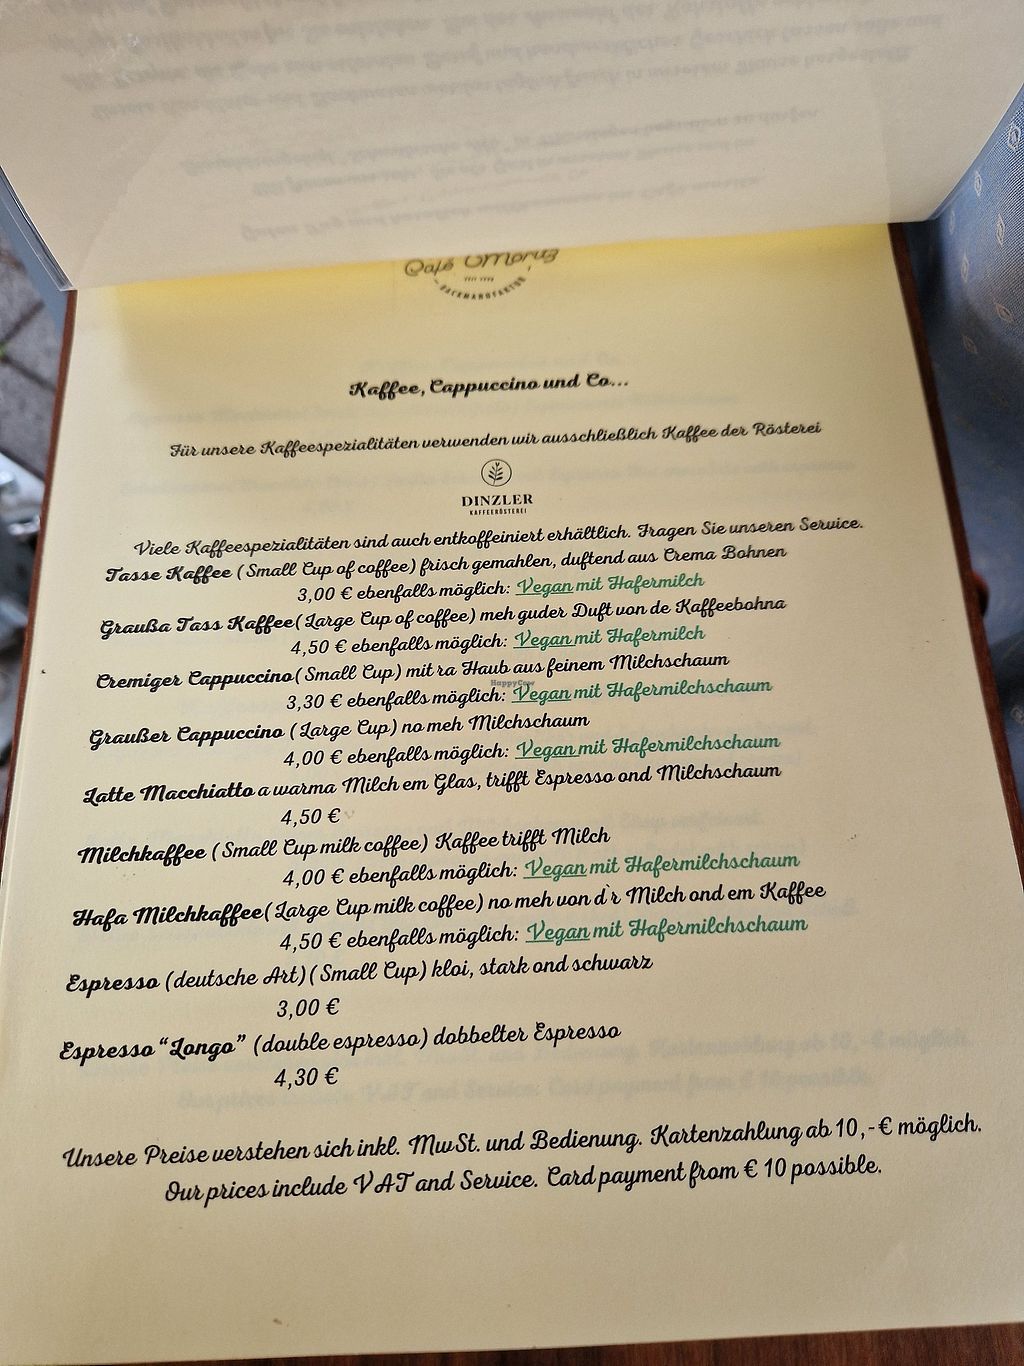 Café Moritz
BACKMANUFAKTUR
Kaffee, Cappuccino und Co...
Für unsere Kaffeespezialitäten verwenden wir ausschließlich Kaffee der Rösterei
DINZLER
KAFFEERÖSTEREI
Viele Kaffeespezialitäten sind auch entkoffeiniert erhältlich. Fragen Sie unseren Service.
Tasse Kaffee (Small Cup of coffee) frisch gemahlen, duftend aus Crema Bohnen
3,00 € ebenfalls möglich: Vegan mit Hafermilch
Graußa Tass Kaffee(Large Cup of coffee) meh guder Duft von de Kaffeebohna
4,50 € ebenfalls möglich: Vegan mit Hafermilch
Cremiger Cappuccino(Small Cup) mit ra Haub aus feinem Milchschaum
HappyCow
3,30 € ebenfalls möglich: Vegan mit Hafermilchschaum
Graußer Cappuccino (Large Cup) no meh Milchschaum
4,00 € ebenfalls möglich: Vegan mit Hafermilchschaum
Latte Macchiatto a warma Milch em Glas, trifft Espresso ond Milchschaum
4,50 €
Milchkaffee (Small Cup milk coffee) Kaffee trifft Milch
4,00 € ebenfalls möglich: Vegan mit Hafermilchschaum
Hafa Milchkaffee(Large Cup milk coffee) no meh von d`r Milch ond em Kaffee
4,50 € ebenfalls möglich: Vegan mit Hafermilchschaum
Espresso (deutsche Art)(Small Cup) kloi, stark ond schwarz
3,00 €
Espresso "Longo" (double espresso) dobbelter Espresso
4,30 €
Unsere Preise verstehen sich inkl. MwSt. und Bedienung. Kartenzahlung ab 10,-€ möglich.
Our prices include VAT and Service. Card payment from € 10 possible.